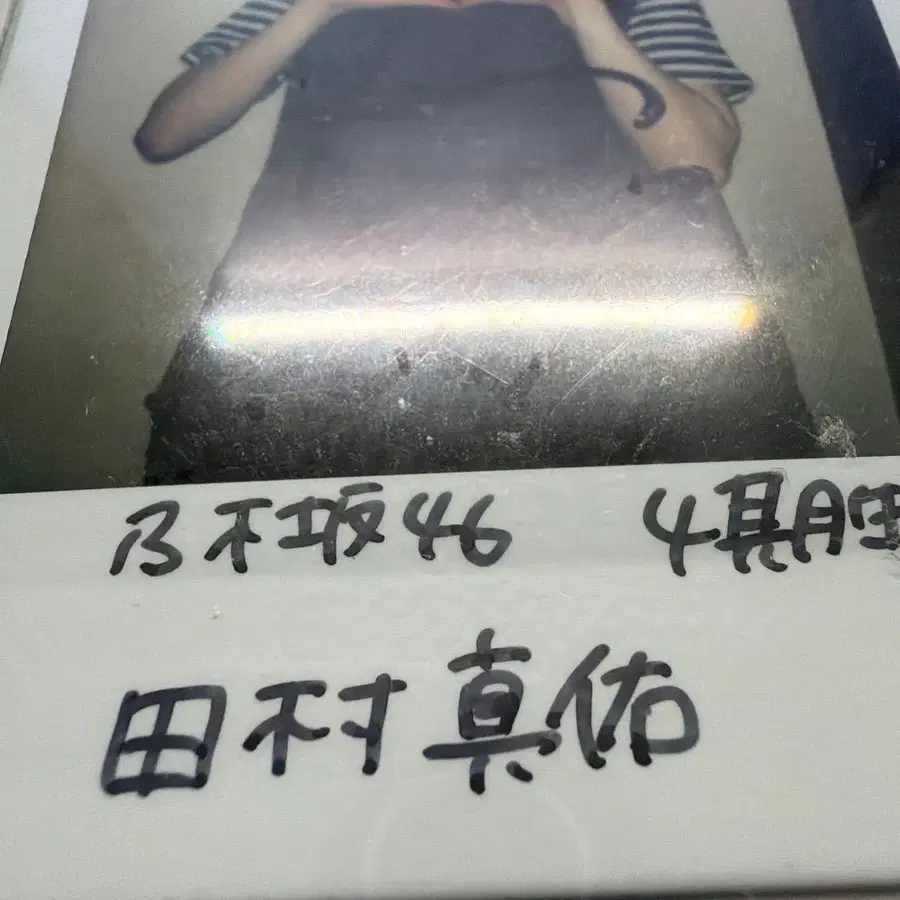 乃木坂46 4期生
田村真佑